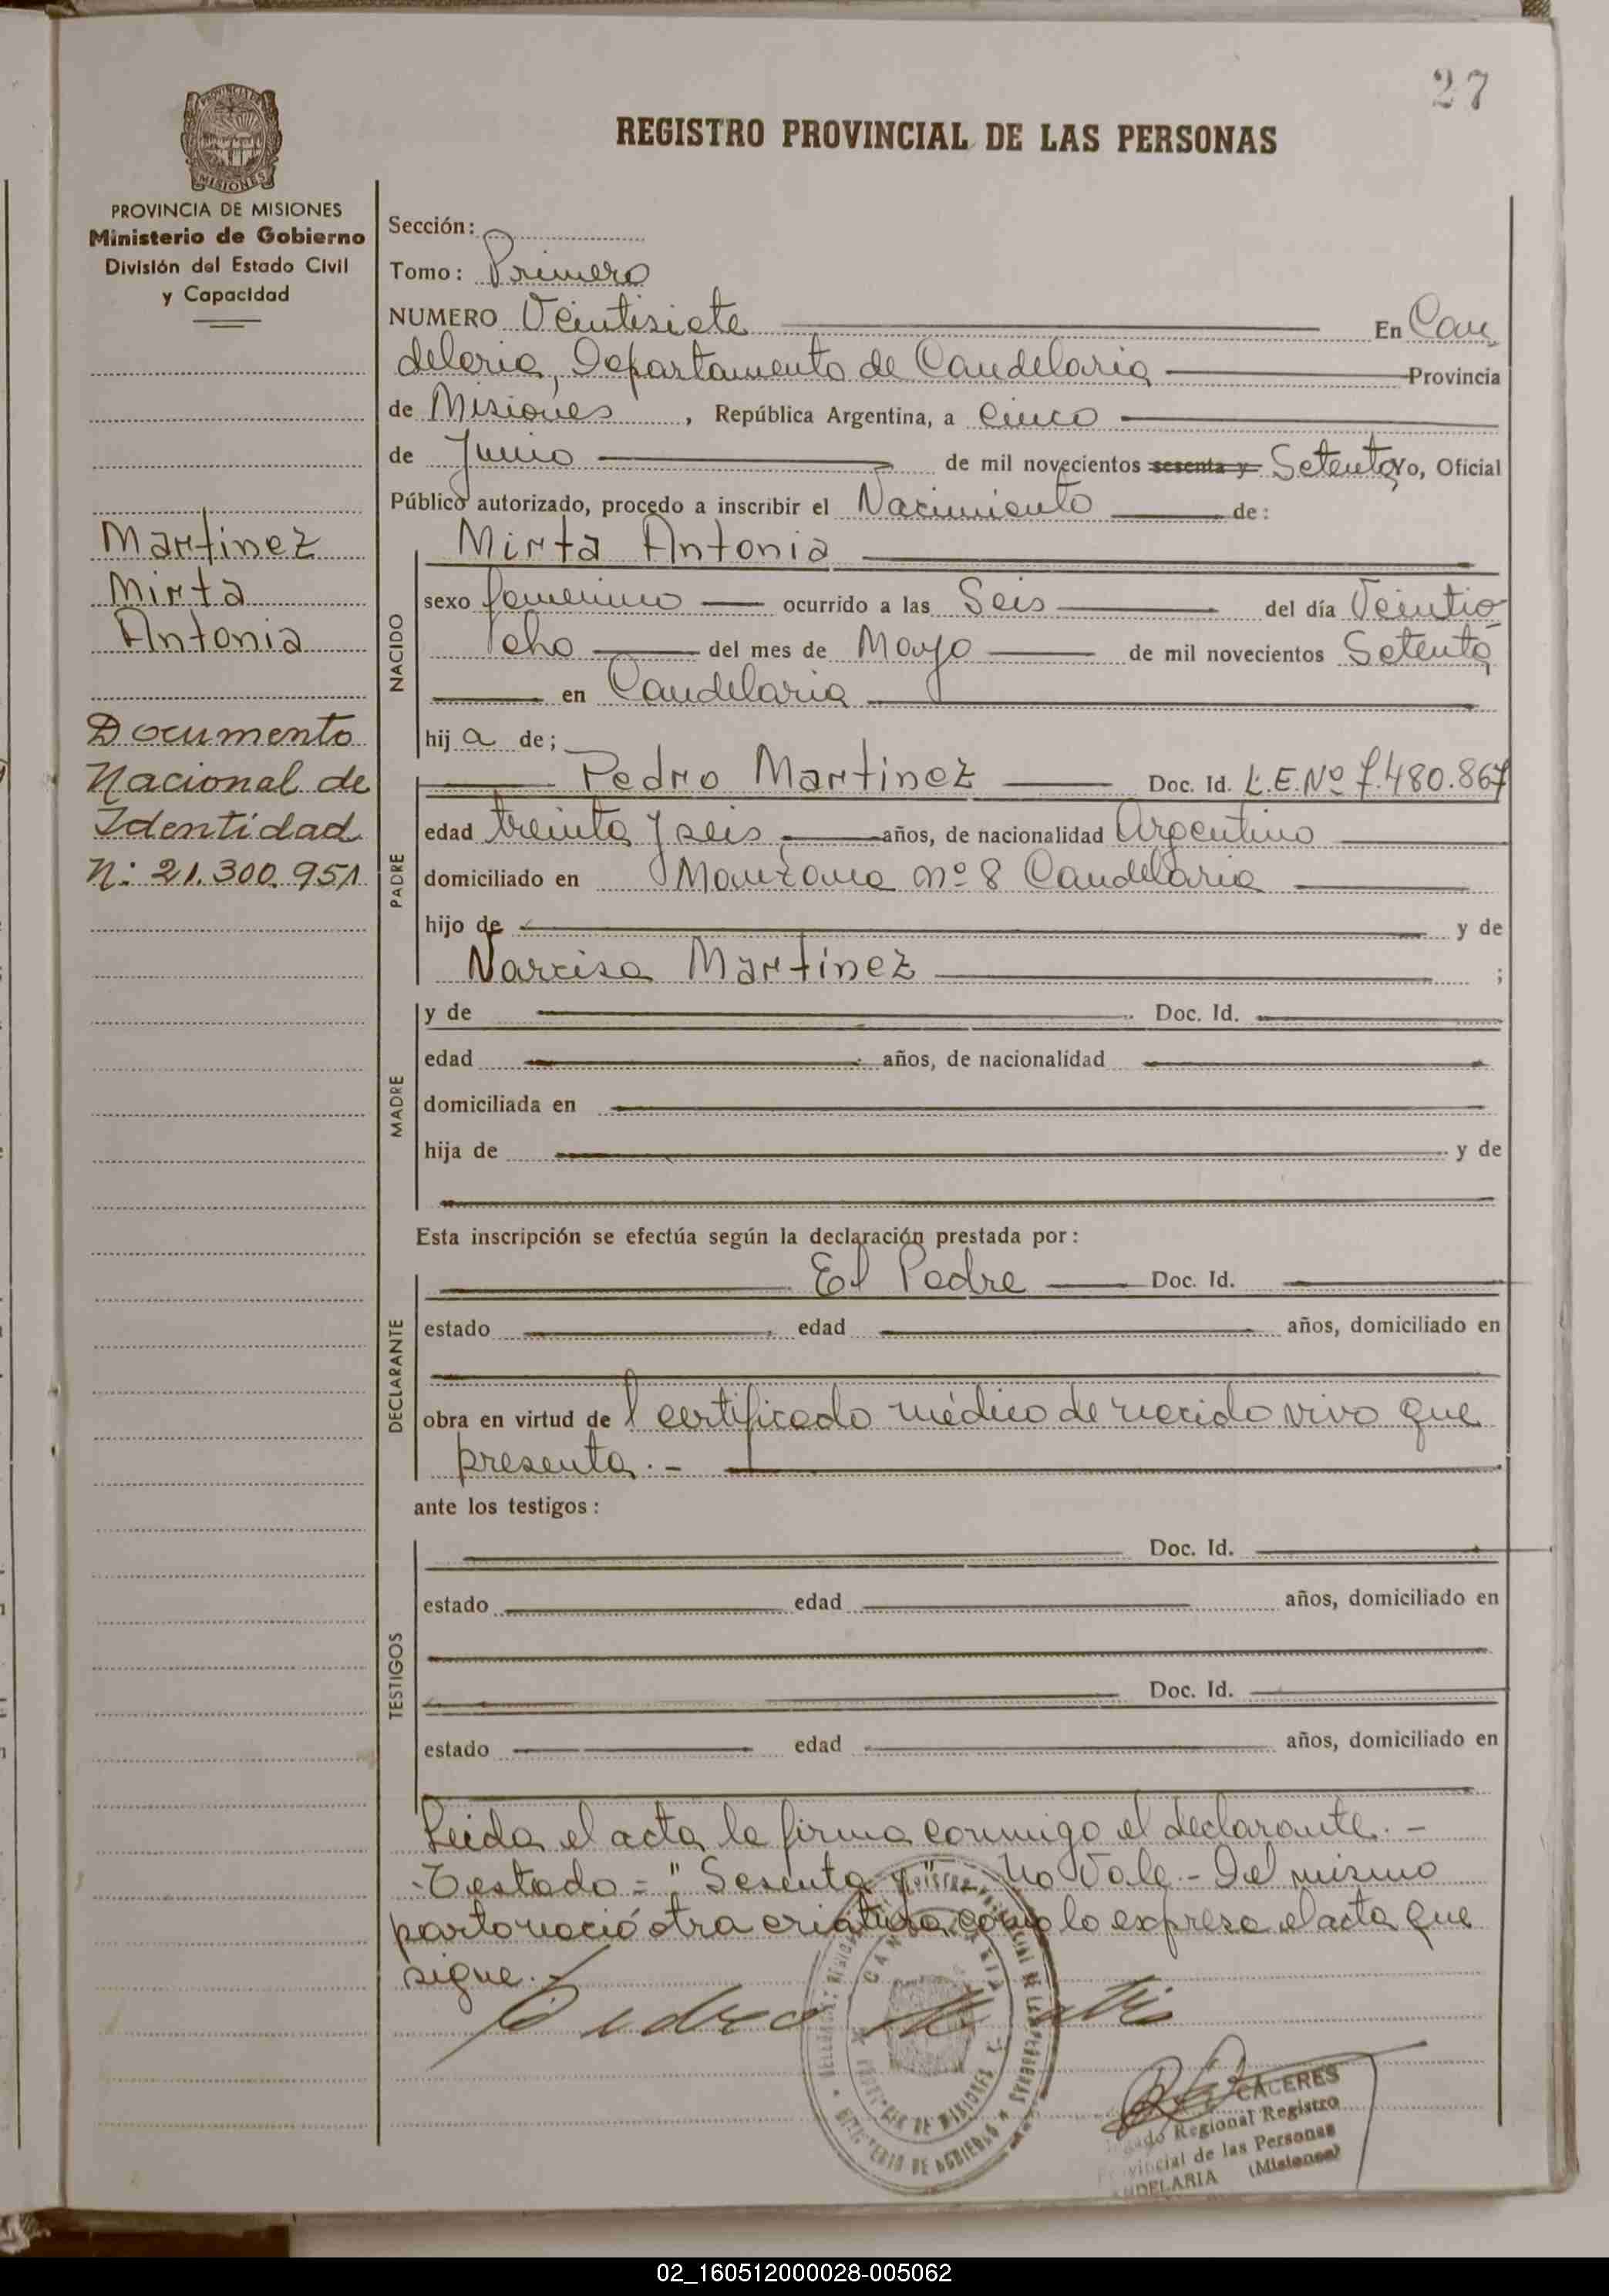 27
REGISTRO PROVINCIAL DE LAS PERSONAS
MISIONES
PROVINCIA DE MISIONES
Ministerio de Gobierno
División del Estado Civil
y Capacidad
Martinez
Mirta
Antonia
Documento
Nacional de
Identidad
N: 21.300.951
Sección:
Tomo: Primero
NUMERO Veintisiete En Can
delaria, Departamento de Candelaria Provincia
de Misiones, República Argentina, a Cinco
de Junio de mil novecientos sesenta y Setenta, Yo, Oficial
Público autorizado, procedo a inscribir el Nacimiento de:
NACIDO
Mirta Antonia
sexo femenino ocurrido a las Seis del día Veintio
cho del mes de Mayo de mil novecientos Setenta
en Candelaria
hija de;
PADRE
Pedro Martinez Doc. Id. L.E.Nº 7.480.867
edad treinta y seis años, de nacionalidad Argentino
domiciliado en Manzana nº 8 Candelaria
hijo de y de
Narcisa Martinez ;
MADRE
y de Doc. Id.
edad años, de nacionalidad
domiciliada en
hija de y de
Esta inscripción se efectúa según la declaración prestada por:
DECLARANTE
El Padre Doc. Id.
estado , edad años, domiciliado en
obra en virtud del certificado médico de nacido vivo que
presenta.-
ante los testigos:
TESTIGOS
Doc. Id.
estado edad años, domiciliado en
Doc. Id.
estado edad años, domiciliado en
Leida el acta la firma conmigo el declarante.-
Testado = "Sesenta y" No Vale.- Del mismo
parto nació otra criatura como lo expresa el acta que
sigue.-
Pedro
CACERES
Regional Registro
Provincial de las Personas
CANDELARIA (Misiones)
PROVINCIA DE MISIONES
MINISTERIO DE GOBIERNO
02_160512000028-005062